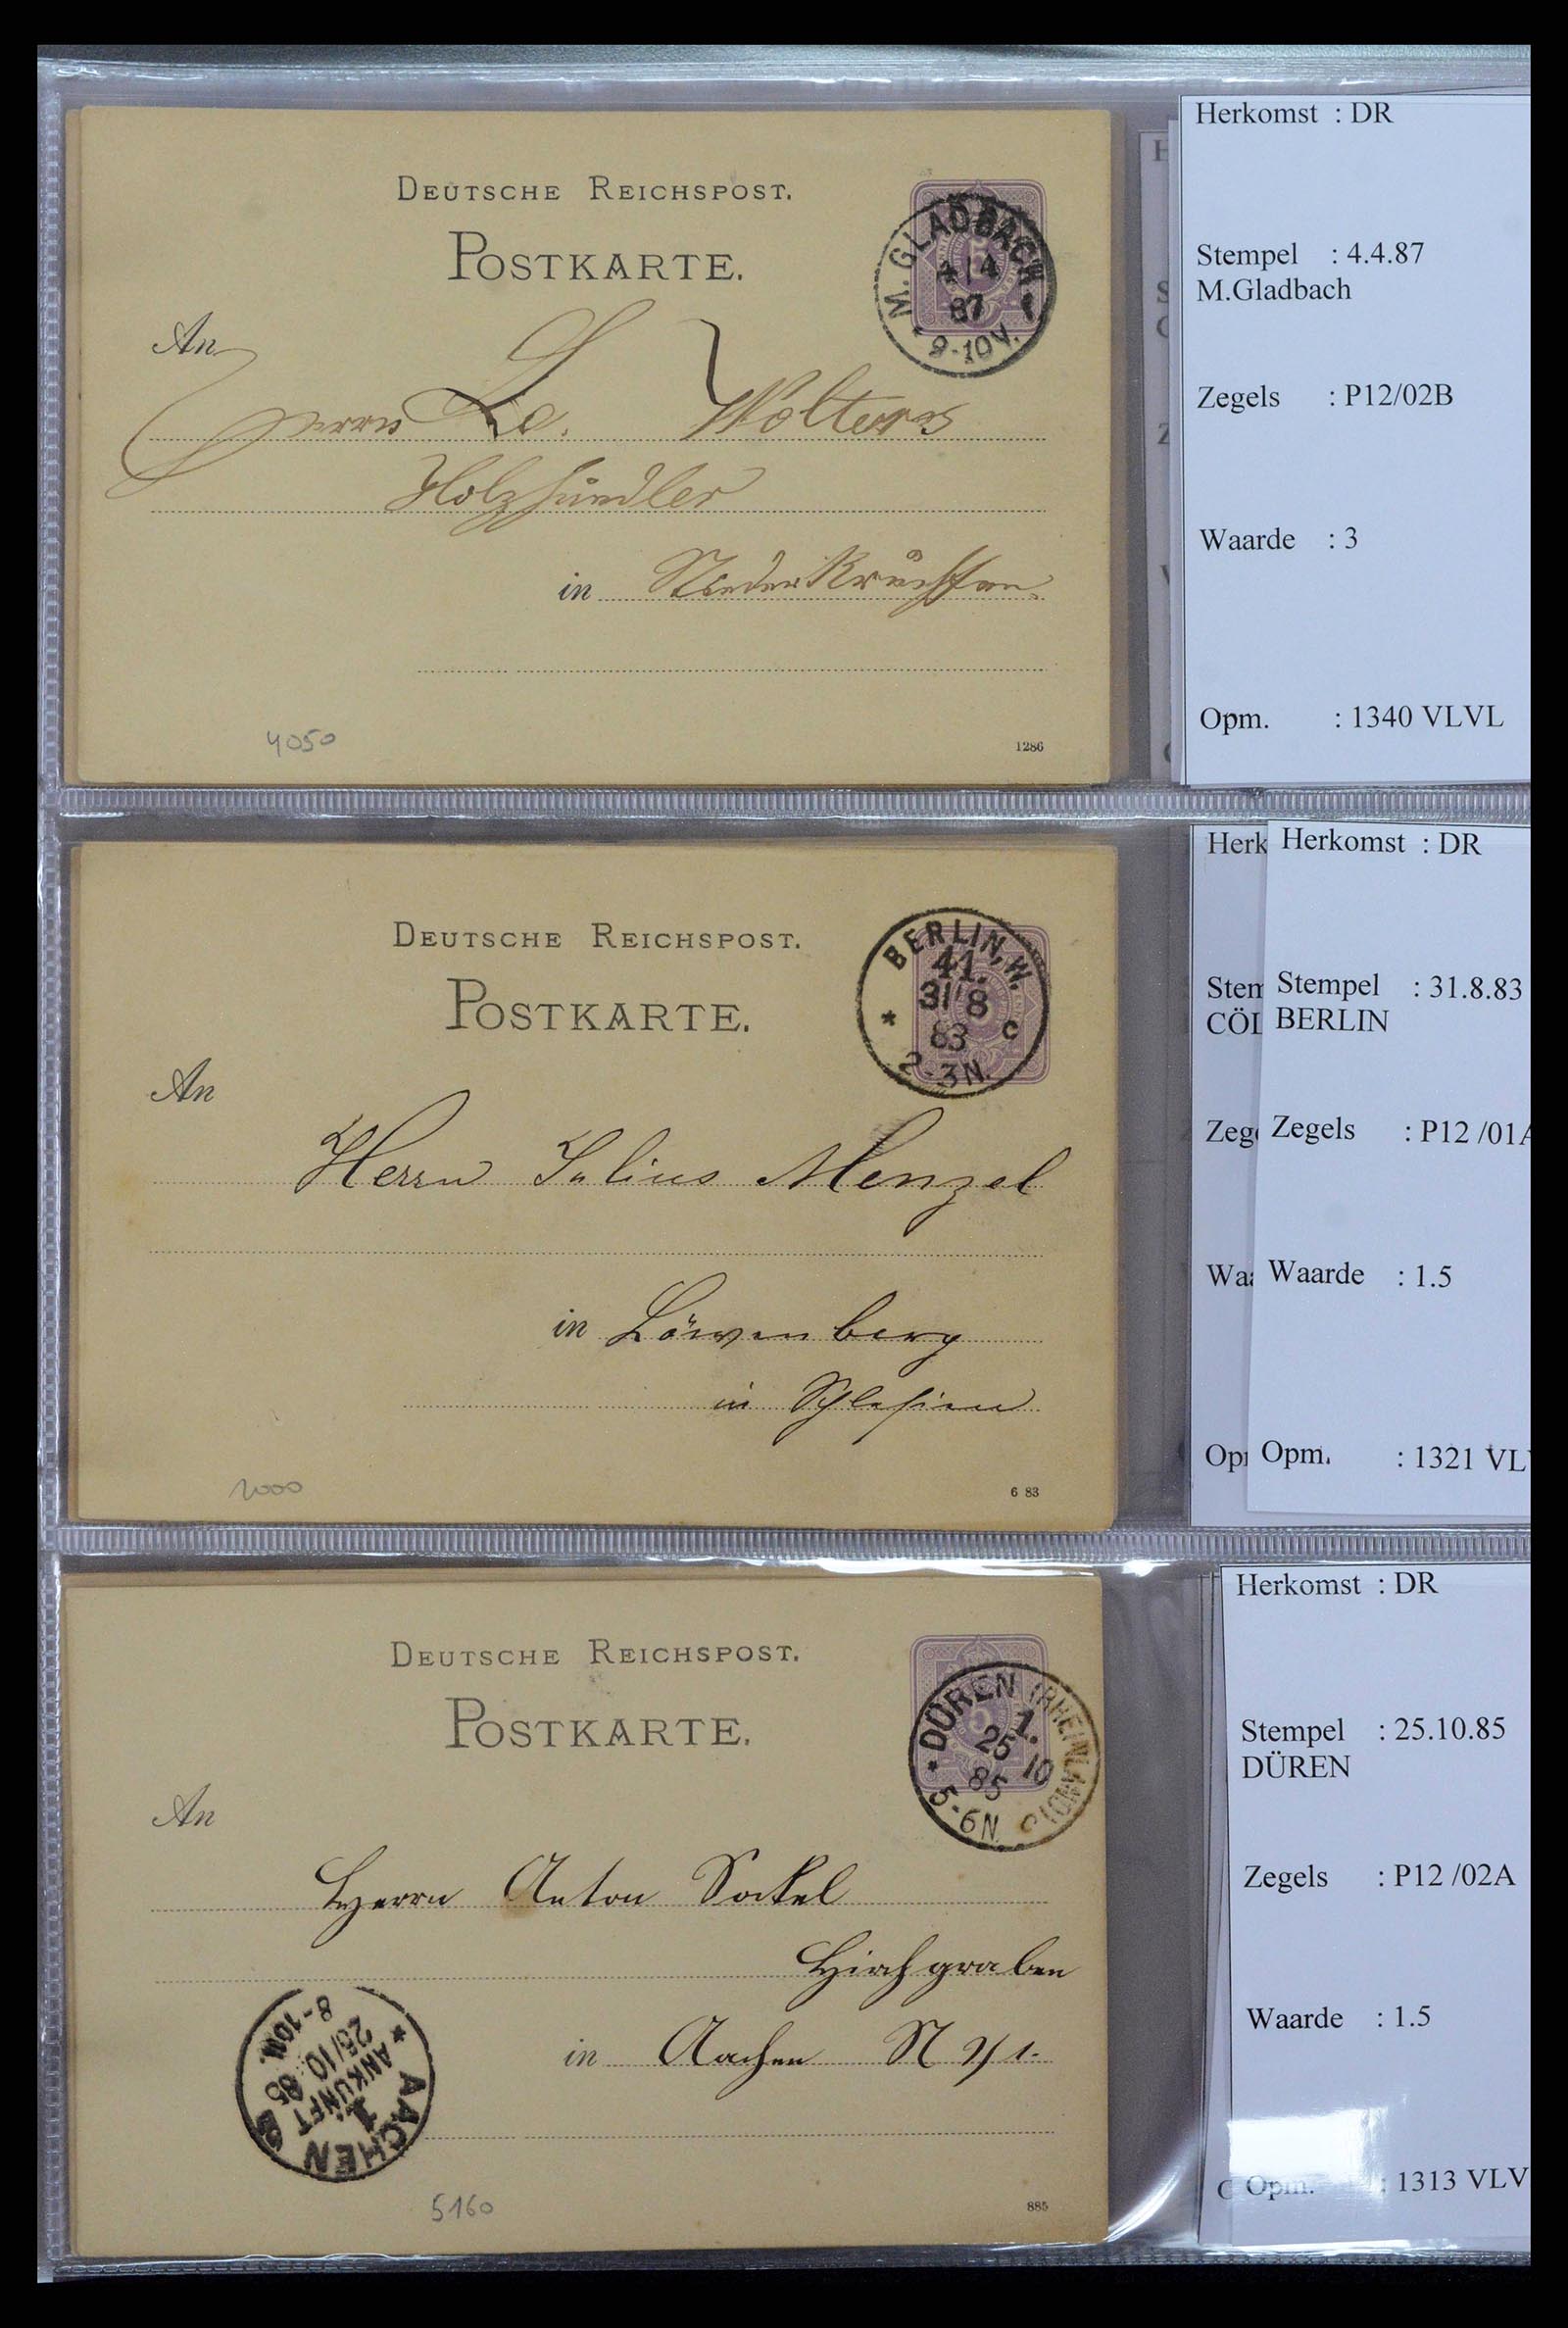 DEUTSCHE REICHSPOST.
POSTKARTE.
M. GLADBACH
4/4
87
9-10V.
An
Herrn Wolters
Holzhändler
in Niederkrüchten.
4050
1286
Herkomst : DR
Stempel : 4.4.87
M.Gladbach
Zegels : P12/02B
Waarde : 3
Opm. : 1340 VLVL
DEUTSCHE REICHSPOST.
POSTKARTE.
BERLIN, W.
41.
31/8
83
* c
2-3N.
An
Herrn Julius Menzel
in Löwenberg
in Schlesien
6 83
Herk
Stem
CÖL
Zeg
Waa
Op
Herkomst : DR
Stempel : 31.8.83
BERLIN
Zegels : P12 /01A
Waarde : 1.5
Opm. : 1321 VL
DEUTSCHE REICHSPOST.
POSTKARTE.
* DÜREN (RHEINLAND) C
1.
25 10
85
5-6N.
An
Herrn Anton
Hirschgraben
in Aachen
* AACHEN
1
ANKUNFT
25/10 85
8-10N.
5160
885
Herkomst : DR
Stempel : 25.10.85
DÜREN
Zegels : P12 /02A
Waarde : 1.5
Opm. : 1313 VLV